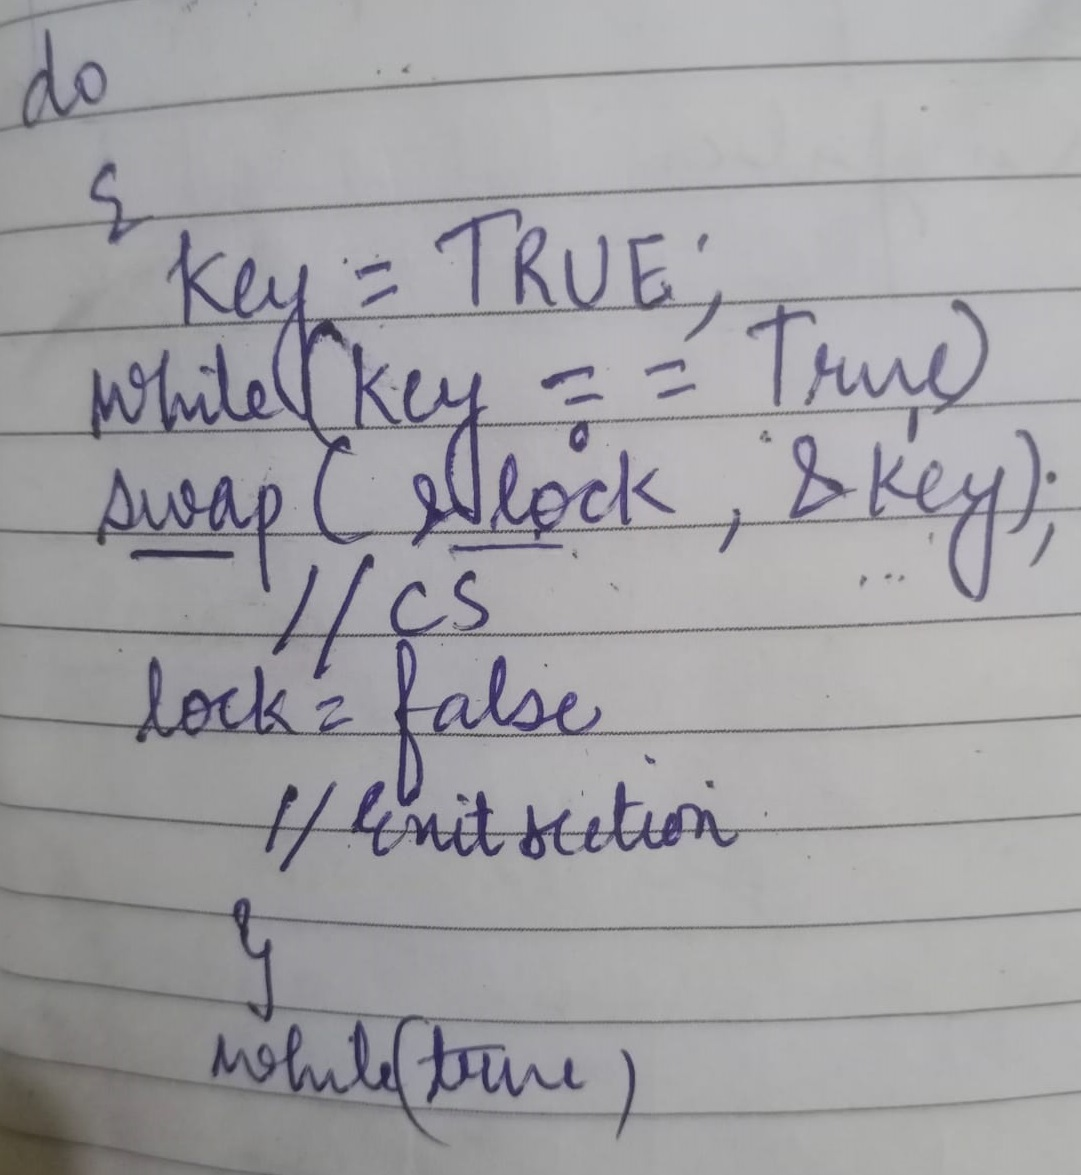 do
{
key = TRUE;
while(key = = True)
swap( &lock , &key);
// CS
lock = false
// Exit section
}
while(true)